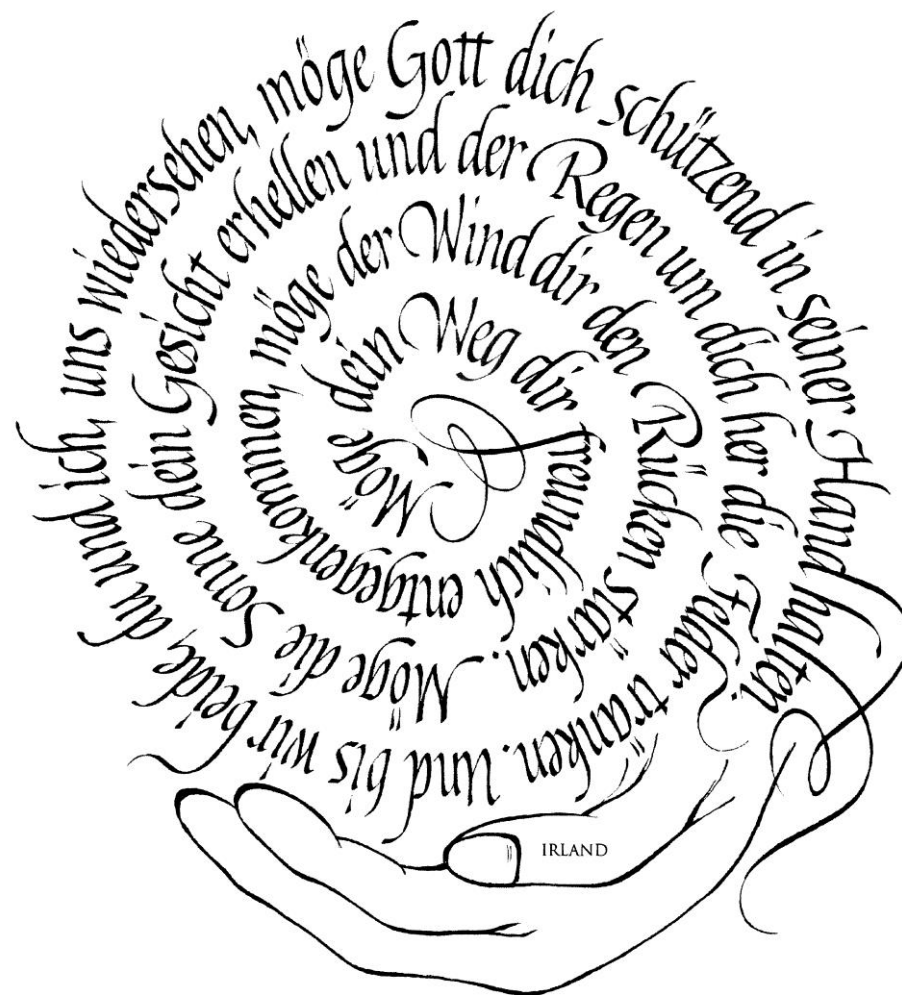 Möge dein Weg dir freundlich entgegenkommen, möge der Wind dir den Rücken stärken. Möge die Sonne dein Gesicht erhellen und der Regen um dich her die Felder tränken. Und bis wir beide, du und ich, uns wiedersehen, möge Gott dich schützend in seiner Hand halten.
IRLAND